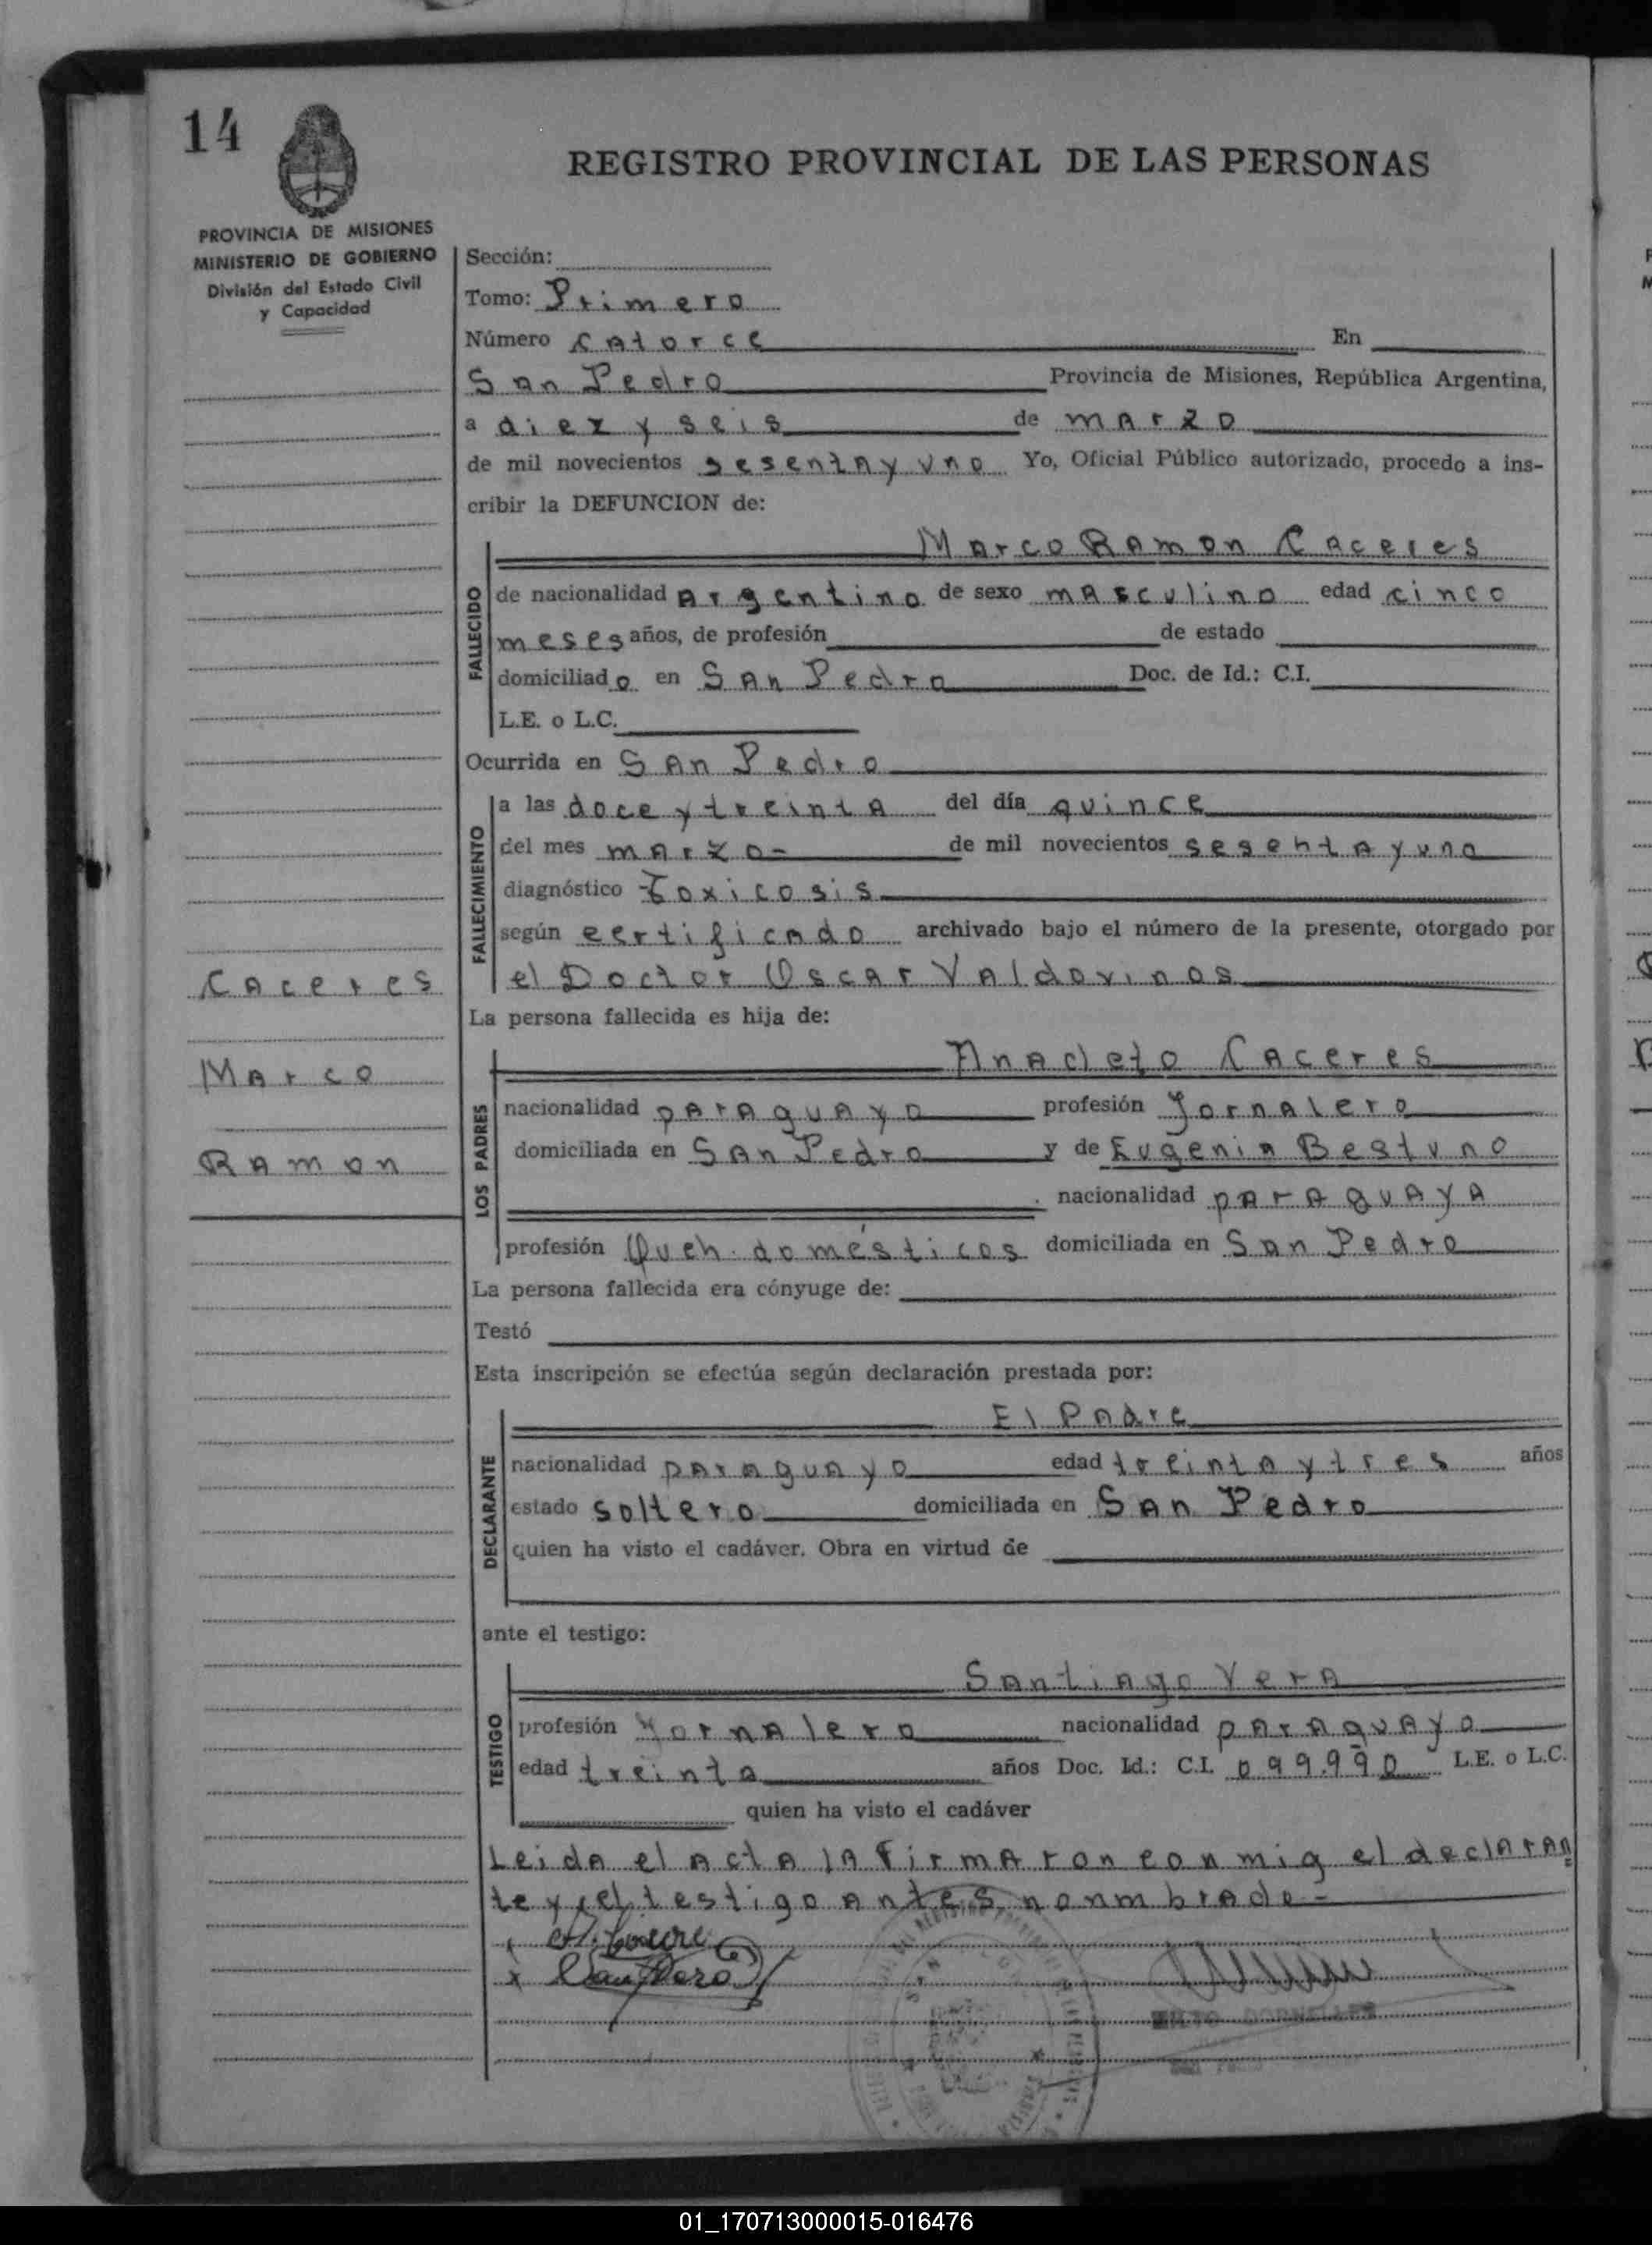 14
REGISTRO PROVINCIAL DE LAS PERSONAS
PROVINCIA DE MISIONES
MINISTERIO DE GOBIERNO
División del Estado Civil
y Capacidad
Sección:
Tomo: Primero
Número catorce En
San Pedro Provincia de Misiones, República Argentina,
a diez y seis de marzo
de mil novecientos sesentay uno Yo, Oficial Público autorizado, procedo a ins-
cribir la DEFUNCION de:
Marco Ramon Caceres
FALLECIDO
de nacionalidad argentino de sexo masculino edad cinco
meses años, de profesión de estado
domiciliado en San Pedro Doc. de Id.: C.I.
L.E. o L.C.
Ocurrida en San Pedro
FALLECIMIENTO
a las doce y treinta del día quince
del mes marzo- de mil novecientos sesenta y uno
diagnóstico toxicosis
según certificado archivado bajo el número de la presente, otorgado por
el Doctor Oscar Valdovinos
Caceres
Marco
Ramon
La persona fallecida es hija de:
LOS PADRES
Anacleto Caceres
nacionalidad paraguayo profesión Jornalero
domiciliada en San Pedro y de Eugenia Bestuno
nacionalidad paraguaya
profesión Queh. domésticos domiciliada en San Pedro
La persona fallecida era cónyuge de:
Testó
Esta inscripción se efectúa según declaración prestada por:
DECLARANTE
El Padre
nacionalidad paraguayo edad treinta y tres años
estado soltero domiciliada en San Pedro
quien ha visto el cadáver. Obra en virtud de
ante el testigo:
TESTIGO
Santiago Vera
profesión Jornalero nacionalidad paraguayo
edad treinta años Doc. Id.: C.I. 099.990 L.E. o L.C.
quien ha visto el cadáver
Leida el acta la firmaron con mig el declaran
te y el testigo antes nonmbrado-
01_170713000015-016476